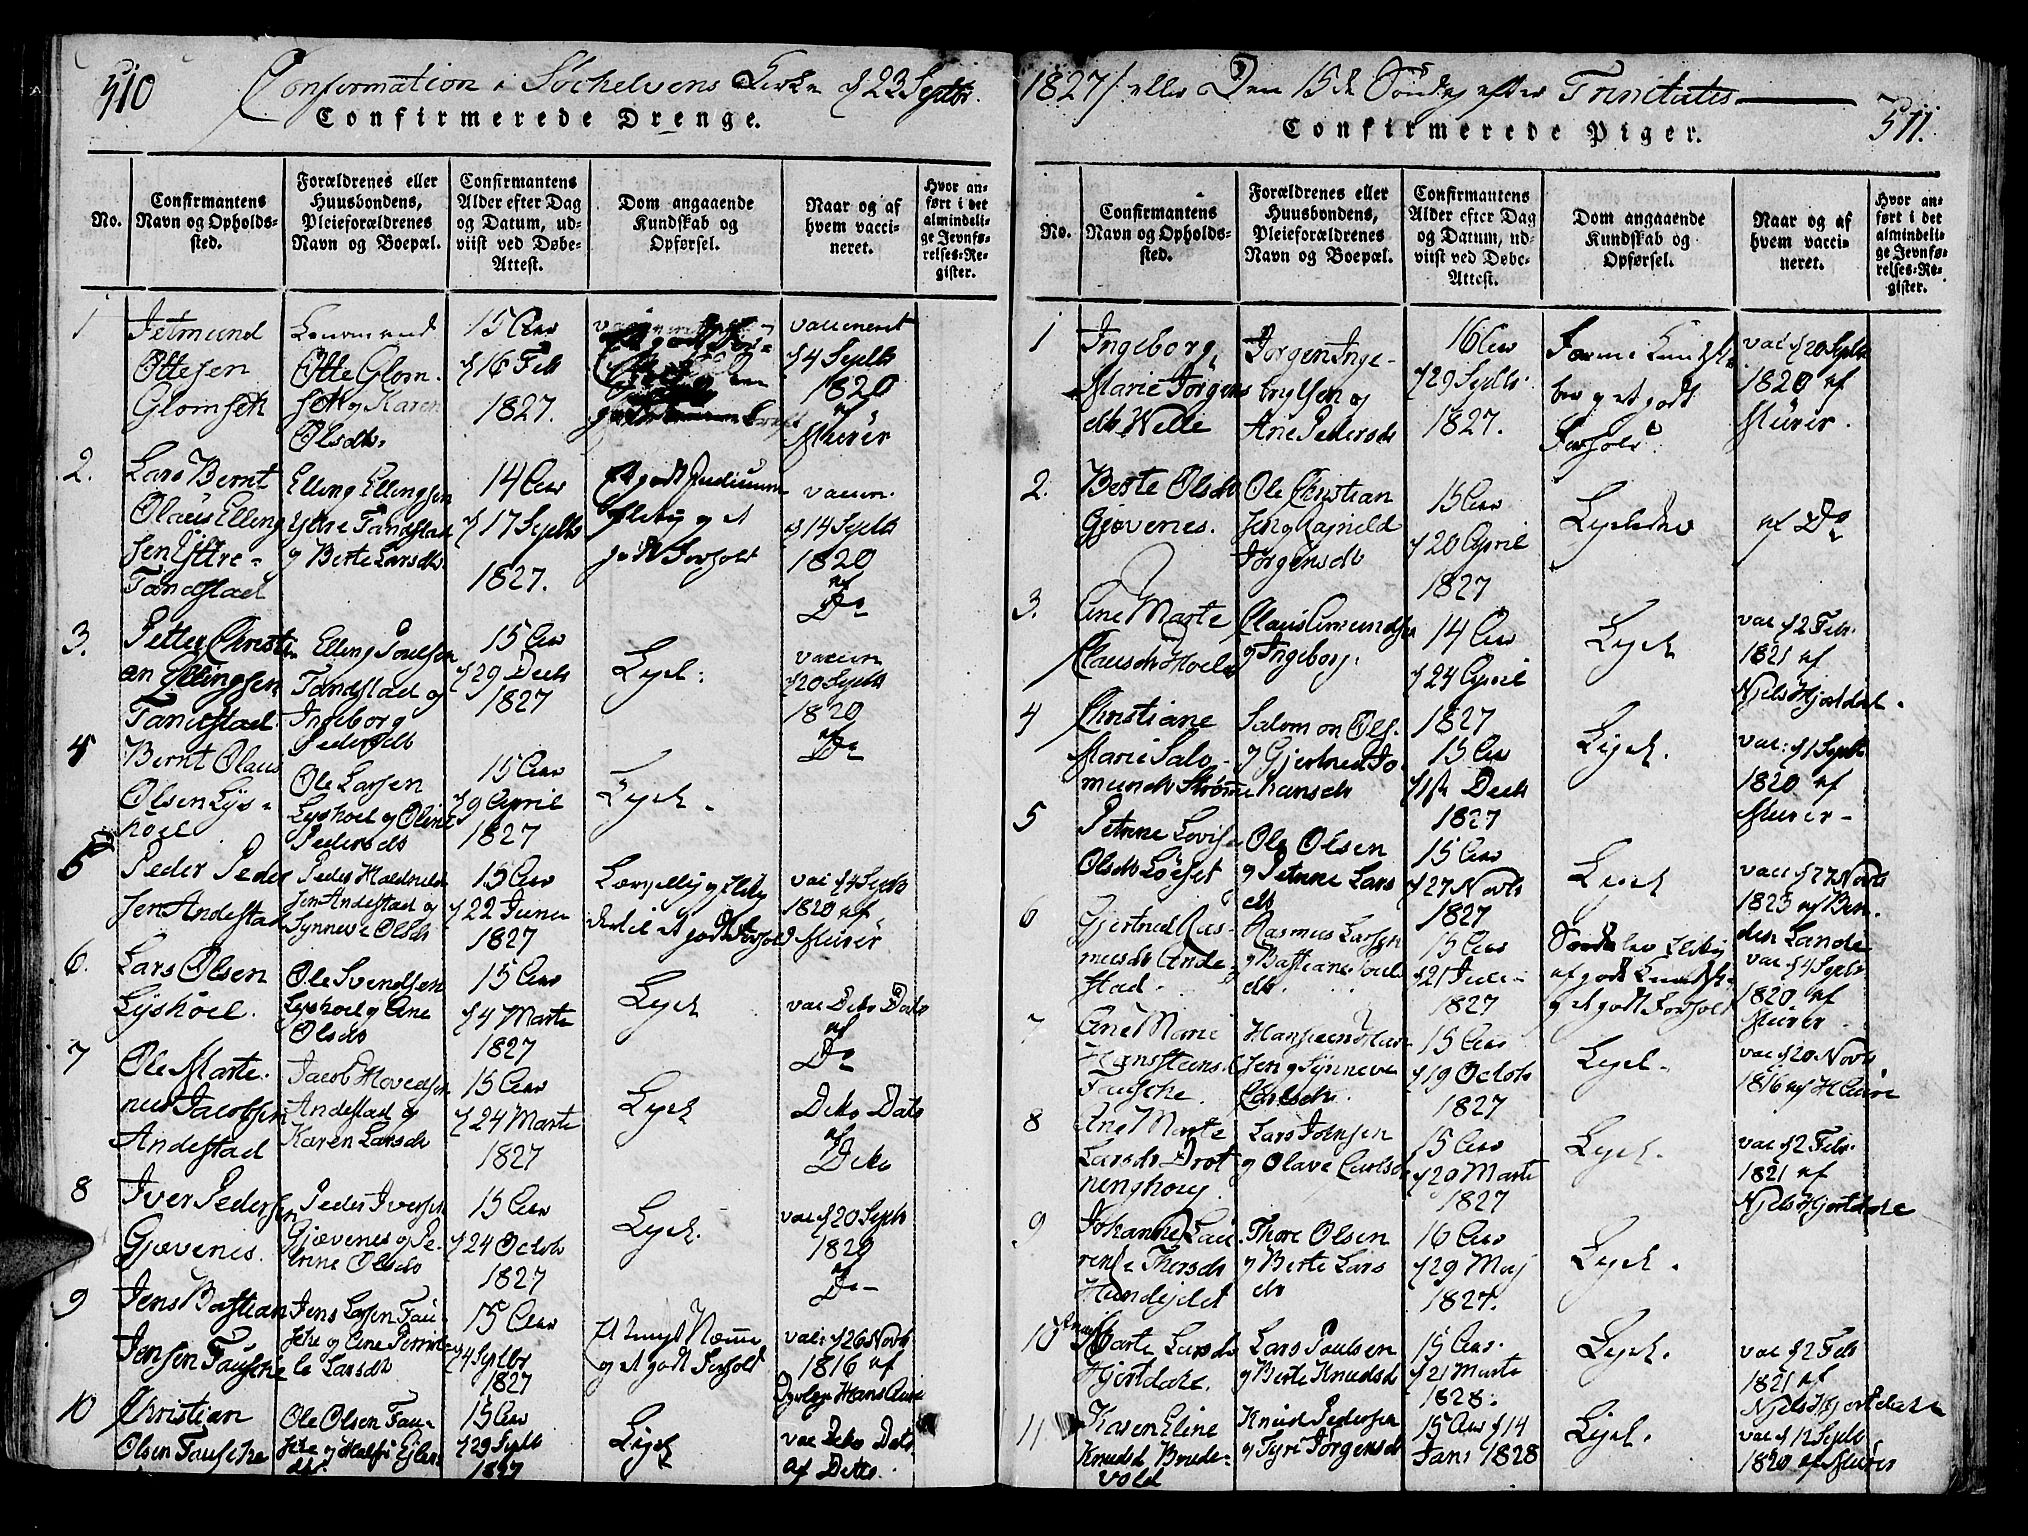 510
Confirmation i Søckelvens Kirke d 23 Septbr.
Confirmerede Drenge.
No.
Confirmantens
Navn og Opholds-
sted.
Forældrenes eller
Huusbondens,
Pleieforældrenes
Navn og Boepæl.
Confirmantens
Alder efter Dag
og Datum, ud-
viist ved Døbe-
Attest.
Dom angaaende
Kundskab og
Opførsel.
Naar og af
hvem vacci-
neret.
Hvor an-
ført i det
almindeli-
ge Jevnfø-
relses-Re-
gister.
1
Jetmund
Ottesen
Glomsek
Otte Glom-
sek og Karen
Olsdtr
15 Aar
d 16 Feb
1827.
vaccineret
d 4 Septb
1820
af
Meürer
2.
Lars Bernt
Olaus Elling
sen Yttre-
Tandstad
Elling Ellingsen
Yttre Tandstad
og Berte Larsdtr
14 Aar
d 17 Septb
1827.
et godt Forholdt
vaccin.
d 14 Septb
1820
af
Do
3.
Petter Christi
an Ellingsen
Tandstad
Elling Poulsen
Tandstad og
Ingeborg
Pedersdtr
15 Aar
d 29 Decb
1827
Lige
vaccin
d 20 Septb
1820
af
Do
4
Bernt Olaus
Olsen Lys-
høel
Ole Larsen
Lyshoel og Oline
Pedersdtr
15 Aar
d 9 April
1827
Lige
5
Peder Peder
sen Andestad
Sen Andestad og
Synneve Olsdtr
15 Aar
d 22 Juni
1827
et godt Forhold
vac d 4 Septb
1820 af
Meürer
6.
Lars Olsen
Lyshoel.
Ole Svendsen
Lyshoel og Ane
Olsdtr
15 Aar
d 4 Marts
1827
Lige
vac Dito Dato
af
Do
7
Ole Marti-
nus Jacobsen
Andestad
Jacob Hovedsen
Andestad og
Karen Larsdtr
15 Aar
d 24 Marts
1827
Lige
Dito Dato
af
Dito
8
Iver Pedersen
Gjævenes.
Peder Iversen
Gjævenes og Pe-
trine Olsdtr
15 Aar
d 24 Octob
1827
Lige
vac d 20 Septb
1820
af
Do
9
Jens Bastian
Jensen Fausche
Jens Larsen Fau-
sche og Ane Pernil-
le Larsdtr
15 Aar
d 4 Septbr
1827
og et godt Forholdt
vac: d 26 Novb
1816 af
Hans Aure
10
Christian
Olsen Fausche
Ole Olsen Fau-
15 Aar
d 29 Septb
1827
Lige
vac Dito Dato
af Ditto.
1827/ eller Den 15de Søndag efter Trinitatis
511.
Confirmerede Piger.
No.
Confirmantens
Navn og Opholds-
sted.
Forældrenes eller
Huusbondens,
Pleieforældrenes
Navn og Boepæl.
Confirmantens
Alder efter Dag
og Datum, ud-
viist ved Døbe-
Attest.
Dom angaaende
Kundskab og
Opførsel.
Naar og af
hvem vacci-
neret.
Hvor an-
ført i det
almindeli-
ge Jevnfø-
relses-Re-
gister.
1
Ingeborg
Marie Jørgens
dtr Welle
Jørgen Inge-
brigtsen og
Ane Pedersdtr
16 Aar
d 29 Septb.
1827.
og et godt
Forhold
vac d 20 Septb
1820 af
Meürer.
2.
Berte Olsdtr
Gjøvenes.
Ole Christian
Sen og Ragneld
Jørgensdtr
15 Aar
d 20 April
1827
Ligeledes
af Do
3.
Ane Marte
Clausdtr Hoels
Claus Amundsen
og Ingeborg
14 Aar
d 24 April
1827
Lige
vac d 2 Feb.
1821 af
Njels Hjortdal.
4
Christiane
Marie Salo-
munds Strømme
Salomon Ols.
og Gjertrud Jo-
hansdtr
15 Aar
d 1ste Decb
1827
Lige.
vac: d 1 Septb
1820 af
Meürer-
5
Petrine Lovise
Olsdtr Løeset
Ole Olsen
og Petrine Lars
dtr
15 Aar
d 27 Novb
1827
Lige
vacc d 27 Novb
1823 af Ben-
dix Lande
6
Gjertrud Ras-
musdtr Ande-
stad.
Rasmus Larsen
og Bastiane Poul
dtr
15 Aar
d 21 Juli
1827
af godt Kundsk.
og et godt Forholdt
vac d 4 Septb.
1820 af
Meürer-
7
Ane Marie
Fausche.
Sen og Synneve
Carlsdtr.
15 Aar
d 19 Octob
1827
Lige.
vac d 20 Novb
1816 af H Aure
8
Ane Marte
Larsdtr Drot
ninghoug.
Lars Johnsen
og Olave Carlsdtr
15 Aar
d 20 Marts
1827
Lige.
vac d 2 Feb.
1821 af
Njels Hjortdale
9
Johanne Lau
rense Thorsdtr
Hundejdet
Thore Olsen
og Berte Lars
dtr
16 Aar
d 29 Maj
1827.
Lige.
10
Marte Larsdtr
Hjortdale.
Lars Poulsen
og Berte Knudsdtr
15 Aar.
d 21 Marts
1828.
Lige.
vac d 2 Feb
1821 af
Njels Hjortdale
11
Karen Eline
Knudsd Brude-
vold
Knud Pedersen
og Syri Jørgensdtr
15 Aar d 14
Jani 1828
Lige.
vac d 12 Septb
1820 af Meürer